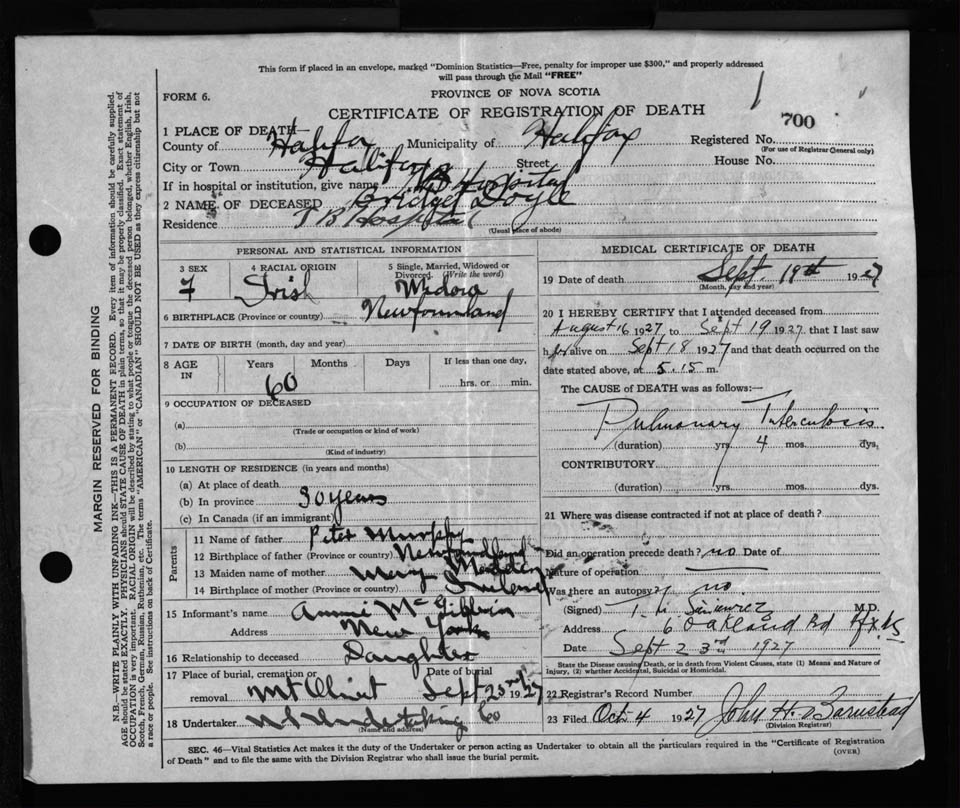 This form if placed in an envelope, marked "Dominion Statistics—Free, penalty for improper use $300," and properly addressed
will pass through the Mail "FREE"
FORM 6.
PROVINCE OF NOVA SCOTIA
CERTIFICATE OF REGISTRATION OF DEATH
700
1 PLACE OF DEATH—
County of Halifax Municipality of Halifax Registered No.
(For use of Registrar General only)
City or Town Halifax Street House No.
If in hospital or institution, give name TB Hospital
2 NAME OF DECEASED Bridget Doyle
Residence TB Hospital
(Usual place of abode)
PERSONAL AND STATISTICAL INFORMATION
3 SEX
F
4 RACIAL ORIGIN
Irish
5 Single, Married, Widowed or
Divorced (Write the word)
Widow
6 BIRTHPLACE (Province or country) Newfoundland
7 DATE OF BIRTH (month, day and year)
8 AGE IN
Years Months Days
60
If less than one day,
hrs. or min.
9 OCCUPATION OF DECEASED
(a)
(Trade or occupation or kind of work)
(b)
(Kind of industry)
10 LENGTH OF RESIDENCE (in years and months)
(a) At place of death
(b) In province years
(c) In Canada (if an immigrant)
Parents
11 Name of father Peter Murphy
12 Birthplace of father (Province or country) Newfoundland
13 Maiden name of mother Mary
14 Birthplace of mother (Province or country) Ireland
15 Informant's name Annie
Address New York
16 Relationship to deceased Daughter
17 Place of burial, cremation or removal Mt Olivet
Date of burial Sept 23rd 1927
18 Undertaker N S Undertaking Co
(Name and address)
MEDICAL CERTIFICATE OF DEATH
19 Date of death Sept. 19th 1927
(Month, day and year)
20 I HEREBY CERTIFY that I attended deceased from
August 16 1927 to Sept 19 1927 that I last saw
her alive on Sept 18 1927 and that death occurred on the
date stated above, at 5.15 m.
The CAUSE of DEATH was as follows:—
Pulmonary Tuberculosis
(duration) yrs. 4 mos. dys.
CONTRIBUTORY
(duration) yrs. mos. dys.
21 Where was disease contracted if not at place of death?
Did an operation precede death? no Date of
Nature of operation
Was there an autopsy? no
(Signed) M.D.
Address 6 Oakland Rd Hfx NS
Date Sept 23rd 1927
State the Disease causing Death, or in death from Violent Causes, state (1) Means and Nature of
Injury, (2) whether Accidental, Suicidal or Homicidal.
22 Registrar's Record Number
23 Filed Oct 4 1927 John H. Barnstead
(Division Registrar)
SEC. 46—Vital Statistics Act makes it the duty of the Undertaker or person acting as Undertaker to obtain all the particulars required in the "Certificate of Registration
of Death" and to file the same with the Division Registrar who shall issue the burial permit.
(OVER)
MARGIN RESERVED FOR BINDING
N.B.—WRITE PLAINLY WITH UNFADING INK—THIS IS A PERMANENT RECORD. Every item of information should be carefully supplied.
AGE should be stated EXACTLY. PHYSICIANS should STATE CAUSE OF DEATH in plain terms, so that it may be properly classified. Exact statement of
OCCUPATION is very important. RACIAL ORIGIN will be described by stating to what people or tongue the deceased person belonged, whether English, Irish,
Scotch, French, German, Russian, Ruthenian, etc. The terms "AMERICAN" or "CANADIAN" SHOULD NOT BE USED as they express citizenship but not
a race or people. See instructions on back of Certificate.